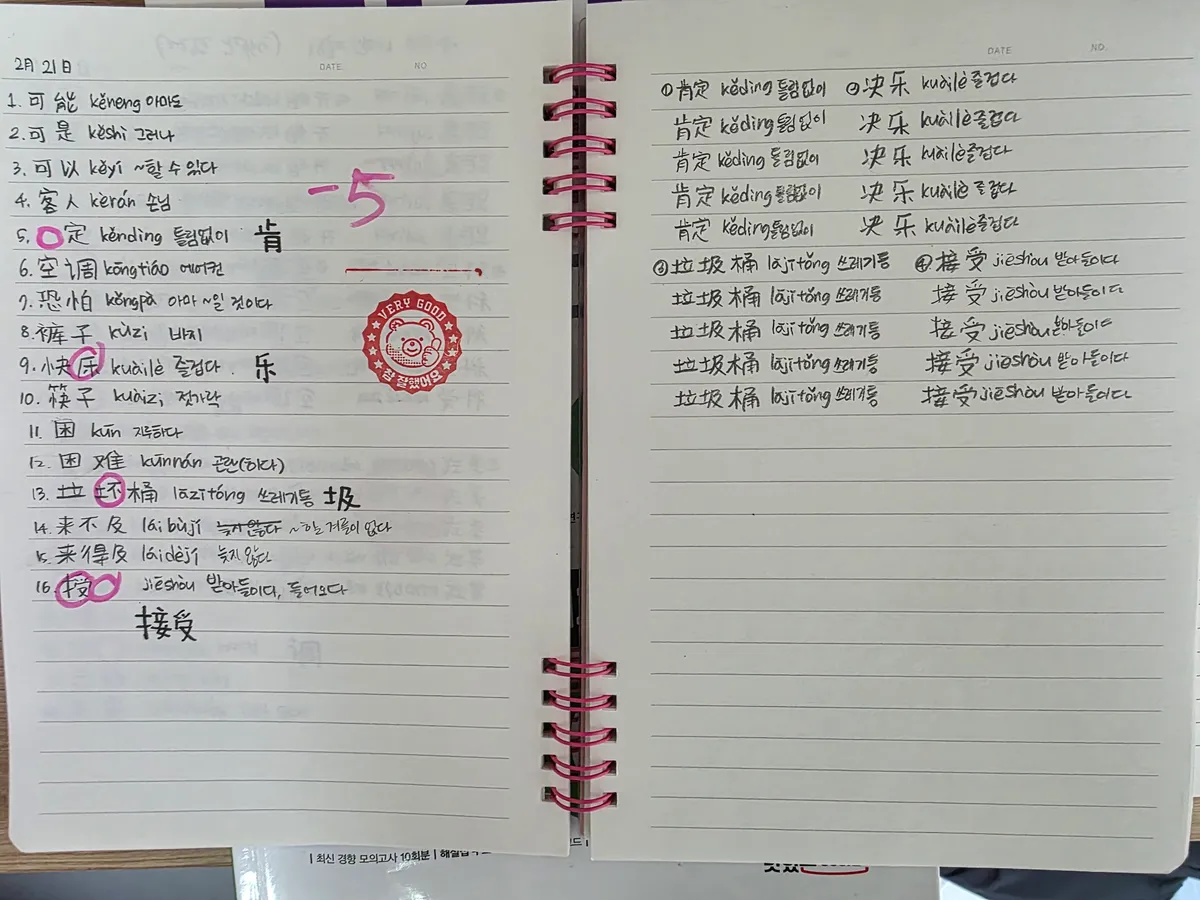 2月 21日
DATE NO
1. 可能 kěnéng 아마도
2. 可是 kěshì 그러나
3. 可以 kěyǐ ~할 수 있다
4. 客人 kèrán 손님
5. 定 kěnding 틀림없이 肯
6. 空调 kōngtiáo 에어컨
7. 恐怕 kǒngpà 아마 ~일 것이다
8. 裤子 kùzi 바지
9. 快乐 kuàilè 즐겁다. 乐
10. 筷子 kuàizi 젓가락
11. 困 kùn 지루하다
12. 困难 kùnnán 곤란(하다)
13. 垃坏桶 lāzītǒng 쓰레기통 圾
14. 来不及 láibùjí 늦지 않다 ~하는 겨를이 없다
15. 来得及 láidéjí 늦지 않다
16. 接 jiēshòu 받아들이다, 들어오다
接受
-5
VERY GOOD
참 잘했어요
DATE NO.
① 肯定 kěding 틀림없이 ② 决乐 kuàilè 즐겁다
肯定 kěding 틀림없이 决乐 kuàilè 즐겁다
肯定 kěding 틀림없이 决乐 kuàilè 즐겁다
肯定 kěding 틀림없이 决乐 kuàilè 즐겁다
肯定 kěding 틀림없이 决乐 kuàilè 즐겁다
③ 垃圾桶 lājītǒng 쓰레기통 ④ 接受 jiēshòu 받아들이다
垃圾桶 lājītǒng 쓰레기통 接受 jiēshòu 받아들이다
垃圾桶 lājītǒng 쓰레기통 接受 jiēshòu 받아들이다
垃圾桶 lājītǒng 쓰레기통 接受 jiēshòu 받아들이다
垃圾桶 lājītǒng 쓰레기통 接受 jiēshòu 받아들이다
| 최신 경향 모의고사 10회분 |